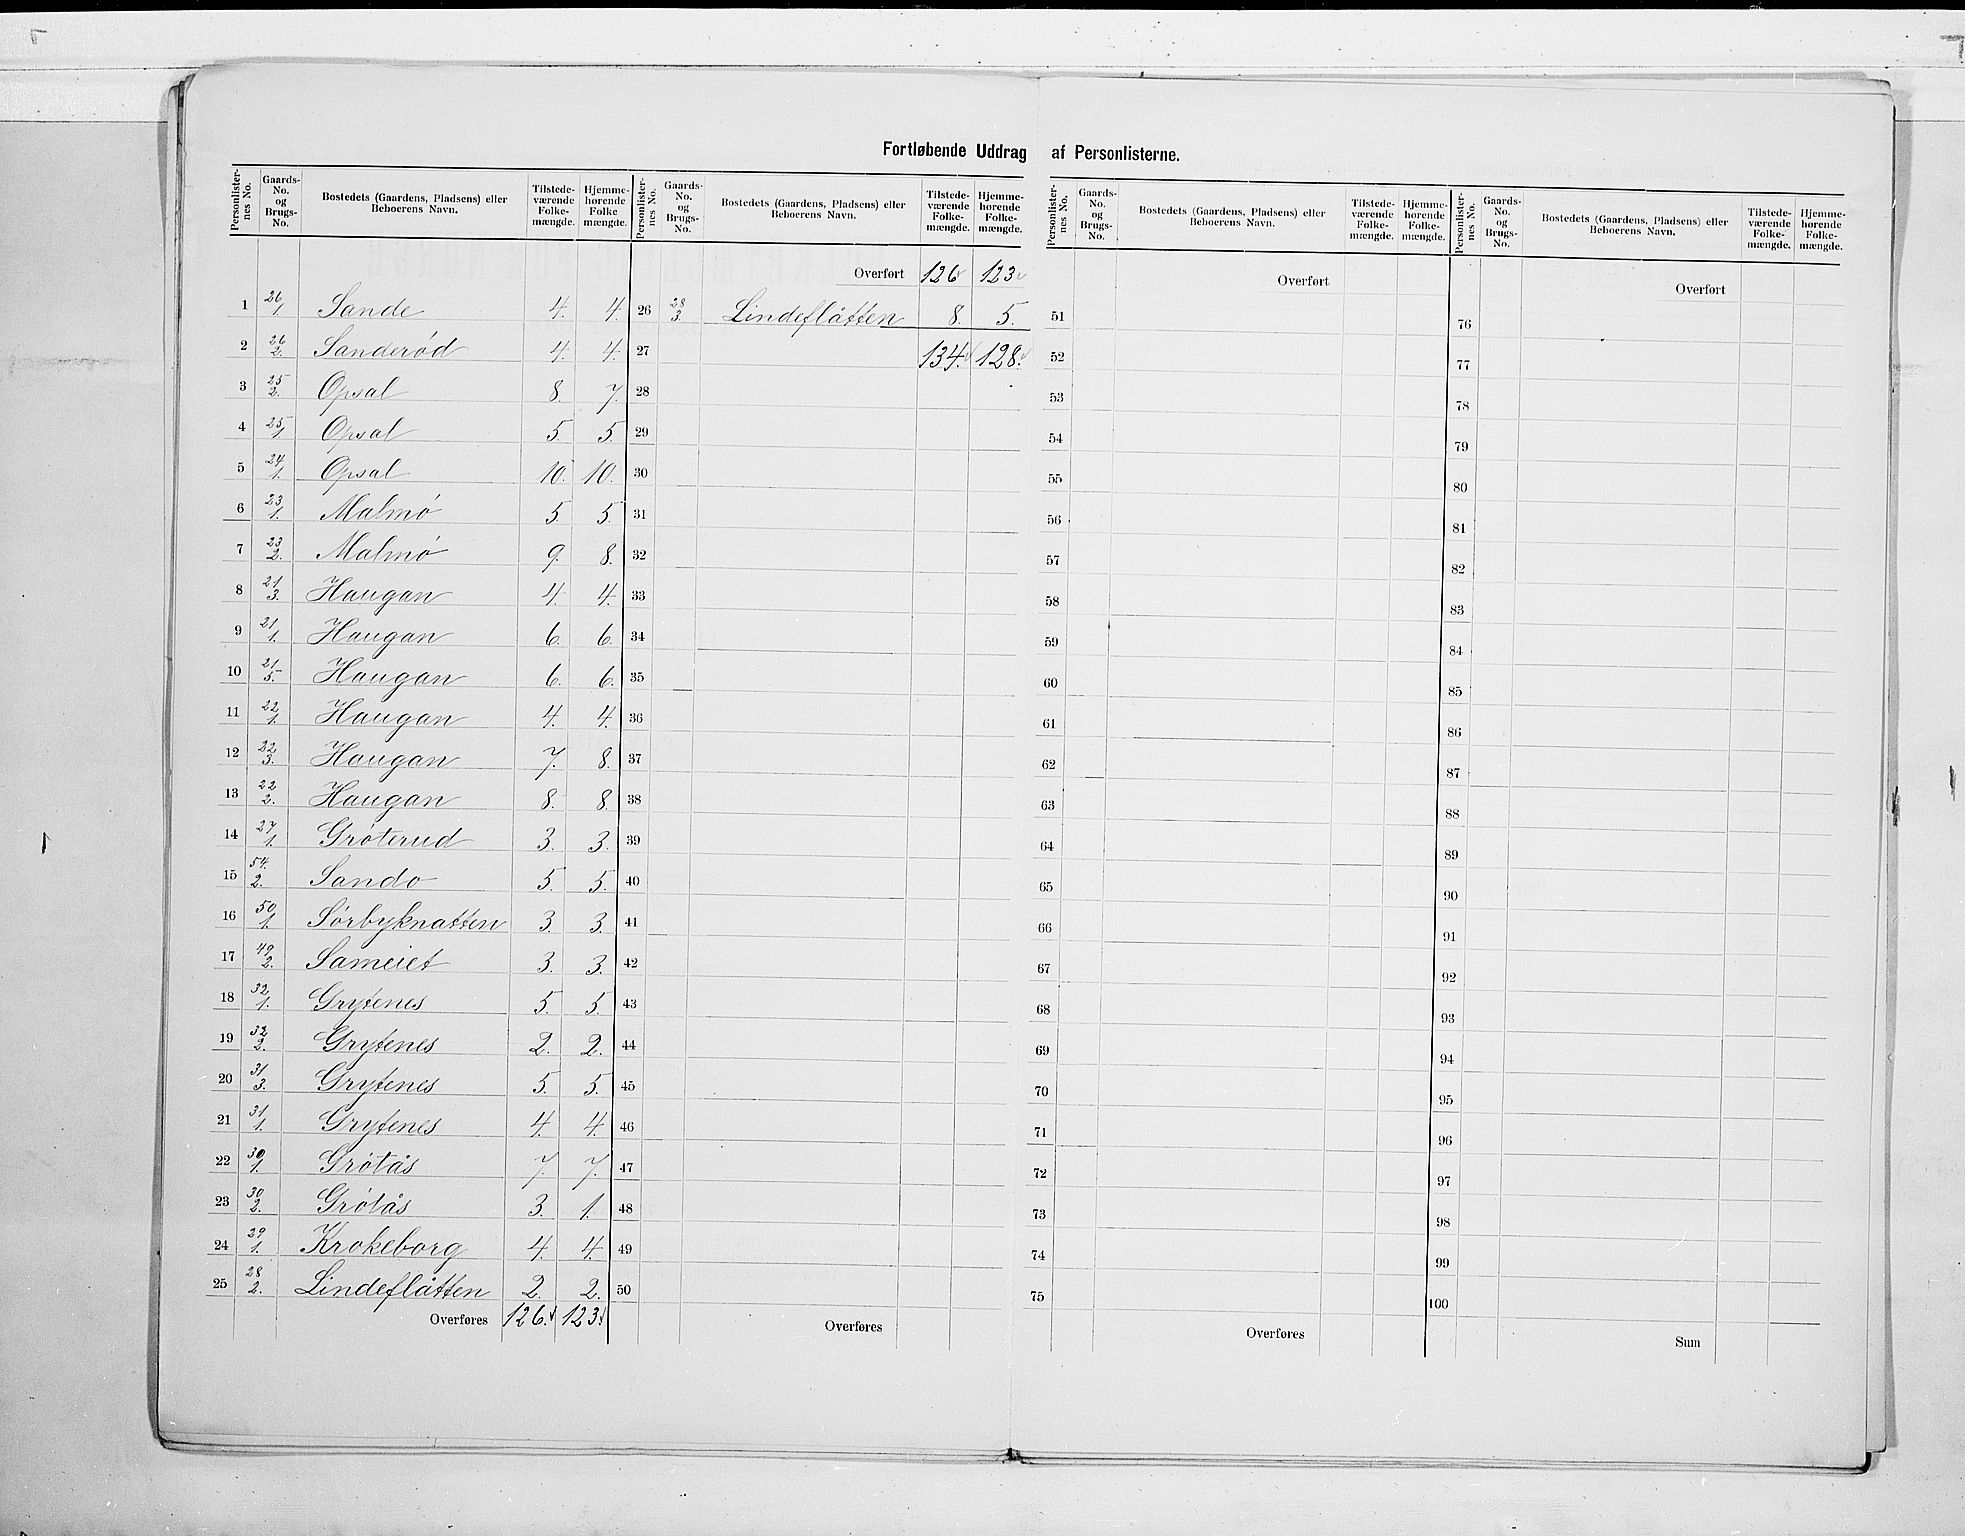 Fortløbende Uddrag af Personlisterne.
Personlister-nes No. | Gaards-No. og Brugs-No. | Bostedets (Gaardens, Pladsens) eller Beboerens Navn. | Tilstede-værende Folke-mængde. | Hjemme-hørende Folke mængde.
1 26/1. Sande 4. 4.
2 26/2. Sanderød 4. 4.
3 25/2. Opsal 8. 7.
4 25/1 Opsal 5. 5.
5 24/1. Opsal 10. 10.
6 23/1. Malmö 5. 5.
7 23/2. Malmö 9. 8.
8 21/3. Haugan 4. 4.
9 21/1. Haugan 6. 6.
10 21/5. Haugan 6. 6.
11 22/1. Haugan 4. 4.
12 22/3. Haugan 7. 8.
13 22/2. Haugan 8. 8.
14 27/1. Gröterud 3. 3.
15 54./2. Sando 5. 5.
16 50/1. Sörbyknatten 3. 3.
17 49/2. Sameiet 3. 3.
18 32/1. Grytenes 5. 5.
19 32/2. Grytenes 2. 2.
20 31/3. Grytenes 5. 5.
21 31./1. Grytenes 4. 4.
22 30/1. Grötås 7. 7.
23 30/2. Grötås 3. 1.
24 29/1. Krokeborg 4. 4.
25 28/2. Lindeflåtten 2. 2.
Overføres 126. 123.
Personlister-nes No. | Gaards-No. og Brugs-No. | Bostedets (Gaardens, Pladsens) eller Beboerens Navn. | Tilstede-værende Folke-mængde. | Hjemme-hørende Folke-mængde.
Overført 126 123
26 28/3. Lindeflåtten 8. 5.
27 134. 128.
28
29
30
31
32
33
34
35
36
37
38
39
40
41
42
43
44
45
46
47
48
49
50
Overføres
Personlister-nes No. | Gaards-No. og Brugs-No. | Bostedets (Gaardens, Pladsens) eller Beboerens Navn. | Tilstede-værende Folke-mængde. | Hjemme-hørende Folke-mængde.
Overført
51
52
53
54
55
56
57
58
59
60
61
62
63
64
65
66
67
68
69
70
71
72
73
74
75
Overføres
Personlister-nes No. | Gaards-No. og Brugs-No. | Bostedets (Gaardens, Pladsens) eller Beboerens Navn. | Tilstede-værende Folke-mængde. | Hjemme-hørende Folke-mængde.
Overført
76
77
78
79
80
81
82
83
84
85
86
87
88
89
90
91
92
93
94
95
96
97
98
99
100
Sum